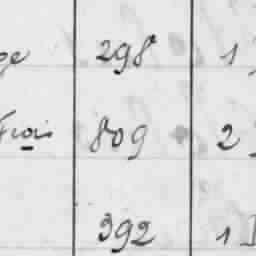 ge 298 1
Frais 809 2
392 1